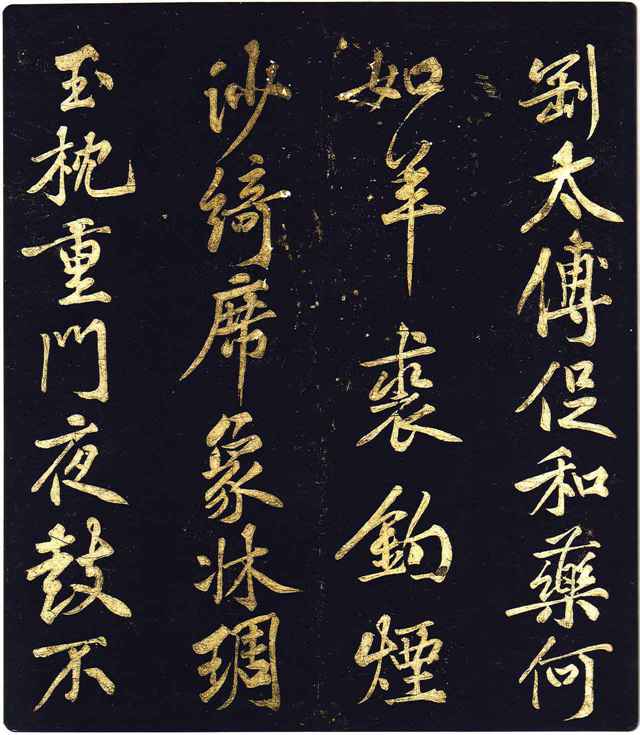 剛太傅促和藥何
如羊裘釣煙
沙綺席象牀琱
玉枕重門夜鼓不